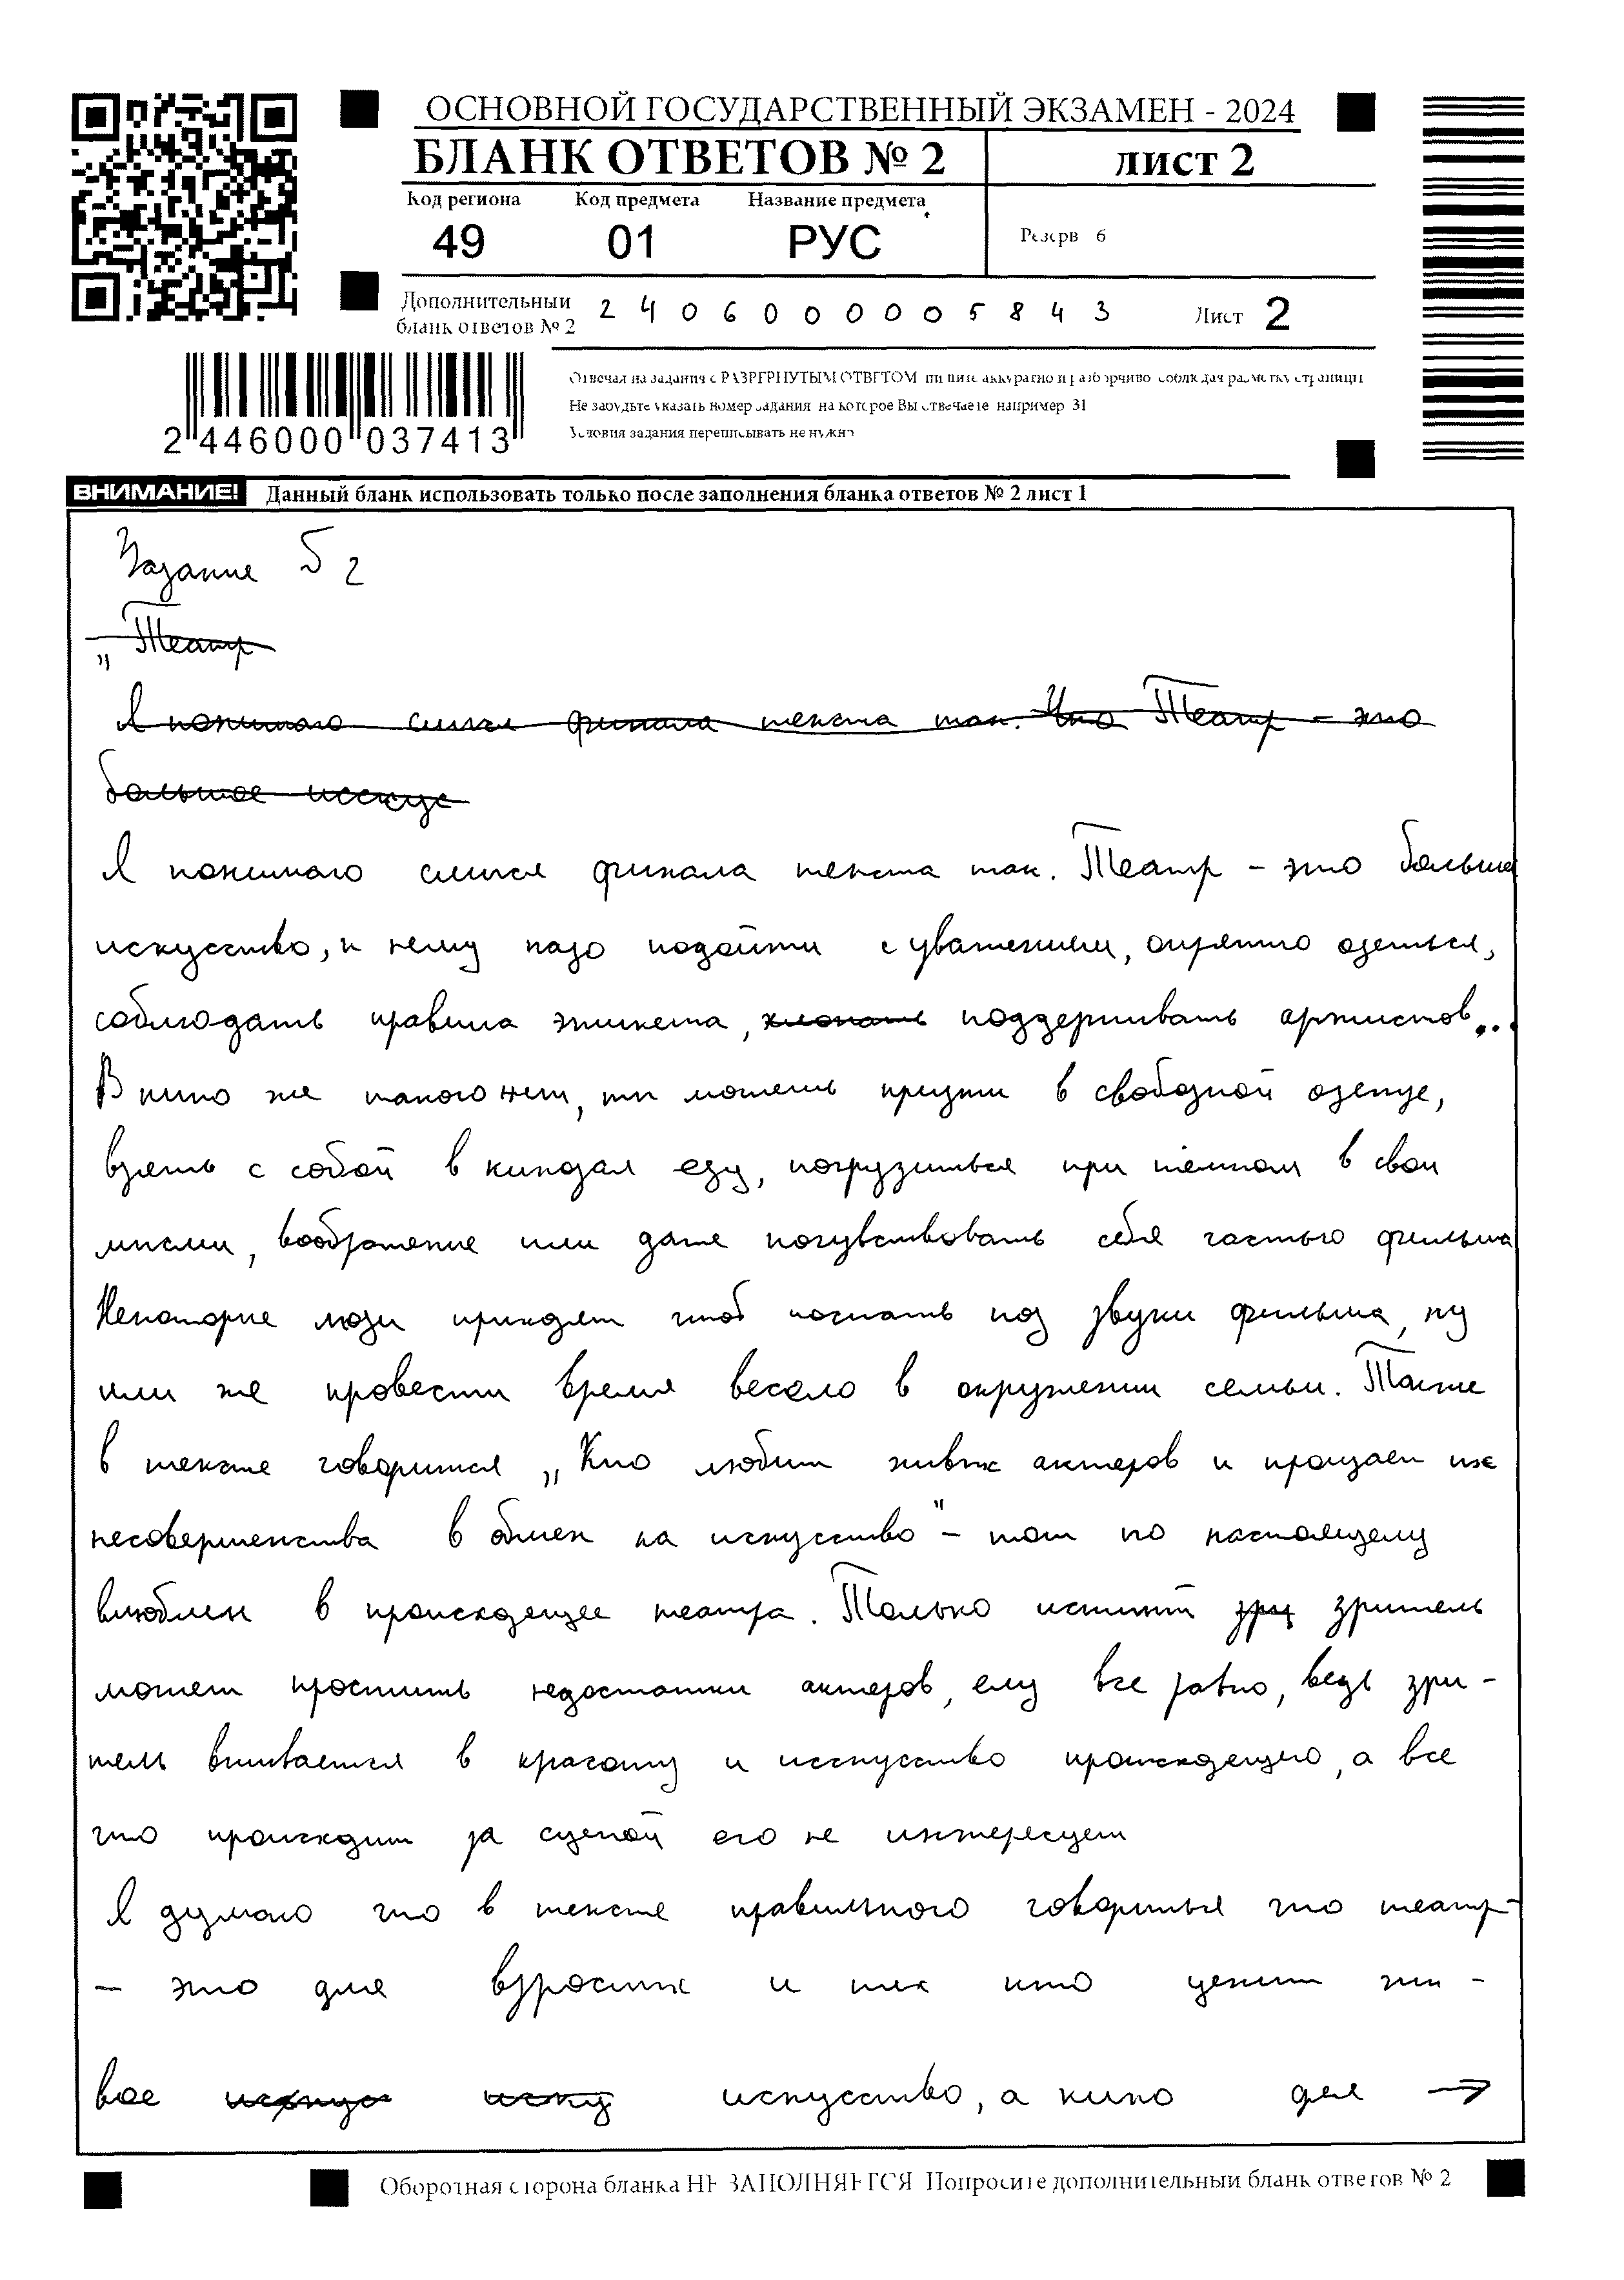 ОСНОВНОЙ ГОСУДАРСТВЕННЫЙ ЭКЗАМЕН - 2024
БЛАНК ОТВЕТОВ № 2
ЛИСТ 2
Код региона Код предмета Название предмета
49 01 РУС
Резерв 6
Дополнительный
бланк ответов № 2
2406000005843
Лист 2
Отвечая на задания с РАЗВЕРНУТЫМ ОТВЕТОМ пишите аккуратно и разборчиво соблюдая разметку страницы
Не забудьте указать номер задания на которое Вы отвечаете например 31
Условия задания переписывать не нужно
2 446000 037413
ВНИМАНИЕ! Данный бланк использовать только после заполнения бланка ответов № 2 лист 1
Задание 5 2
„Театр
Я понимаю смысл финала текста так. Что Театр – это
большое искус
Я понимаю смысл финала текста так. Театр – это больше
искусство, к нему надо подойти с уважением, опрятно одеться,
соблюдать правила этикета, хлопать поддерживать артистов...
В кино же такого нет, ты можешь придти в свободной одежде,
взять с собой в кинозал еду, погрузиться при тёмном в свои
мысли, воображение или даже почувствовать себя частью фильма
Некоторые люди приходят чтоб поспать под звуки фильма, ну
или же провести время весело в окружении семьи. Также
в тексте говорится „Кто любит живых актеров и прощает их
несовершенства в обмен на искусство" – тот по настоящему
влюблен в происходящее театра. Только истинный зрит зритель
может простить недостатки актеров, ему все равно, ведь зри-
тель вживается в красоту и исскусство происходящего, а все
что происходит за сценой его не интересует
Я думаю что в тексте правильного говориться что театр-
– это для взрослых и тех кто ценит жи-
вое искнус иску искусство, а кино для →
Оборотная сторона бланка НЕ ЗАПОЛНЯЕТСЯ Попросите дополнительный бланк ответов № 2